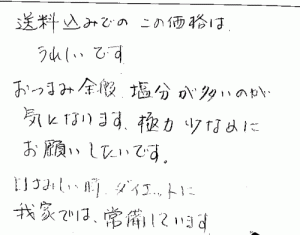 送料込みでの この価格は、
うれしいです
おつまみ全般、塩分が多いのが
気になります、極力少なめに
お願いしたいです。
口さみしい時、ダイエットに
我家では、常備しています